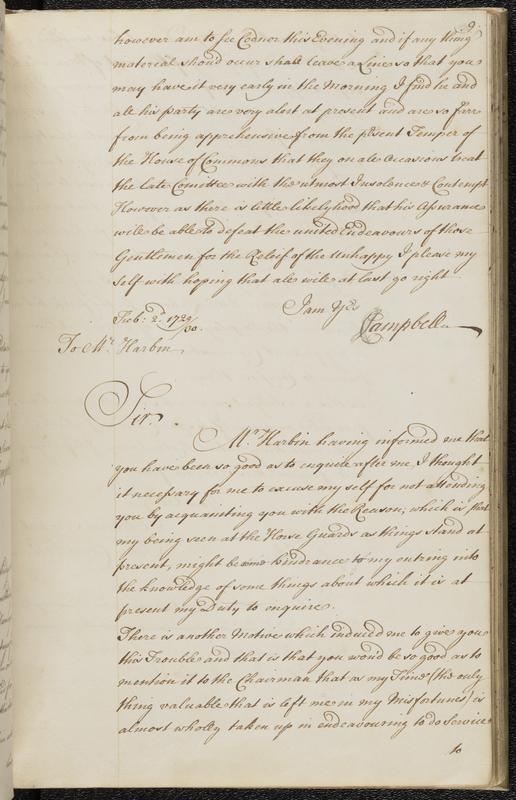 9.
however am to see Codner this Evening and if any thing
material shoud occur shall leave a Line so that you
may have it very early in the Morning I find he and
all his party are very alert at present and are so farr
from being apprehensive from the p̄sent Temper of
the House of Commons that they on all Occasions treat
the late Comittee with the utmost Insolence & Contempt
However as there is little likelyhood that his Assurance
will be able to defeat the united Endeavours of those
Gentlemen for the Releif of the Unhappy I please my
self with hoping that all will at last go right
I am &c
Feb: 2d. 1729/30.
JCampbell
To Mr. Harbin
Sir.
Mr. Harbin having informed me that
you have been so good as to enquire after me, I thought
it necessary for me to excuse my self for not attending
you by acquainting you with the Reason, which is that
my being seen at the Horse Guards as things stand at
present, might be some hindrance to my entring into
the knowledge of some things about which it is at
present my Duty to inquire.
There is another Motive which induced me to give you
this Trouble and that is that you woud be so good as to
mention it to the Chairman that as my Time (the only
thing valuable that is left me in my Misfortunes) is
almost wholly taken up in endeavouring to do Service
to